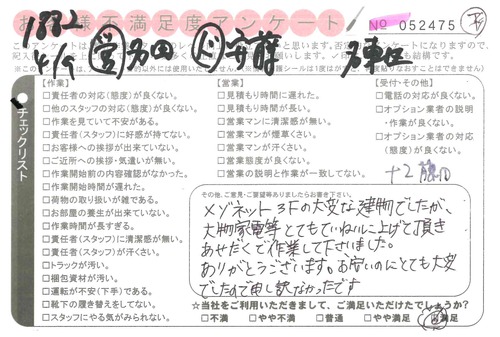 お客様不満足度アンケート
No 052475
1882
4/9 営 多田
チェックリスト
【作業】
□責任者の対応(態度)が良くない。
□他のスタッフの対応(態度)が良くない。
□作業を見ていて不安がある。
□責任者(スタッフ)に好感が持てない。
□お客様への挨拶が出来ていない。
□ご近所への挨拶・気遣いが無い。
□作業開始前の内容確認がなかった。
□作業開始時間が遅れた。
□荷物の取り扱いが雑である。
□お部屋の養生が出来ていない。
□作業時間が長すぎる。
□責任者(スタッフ)に清潔感が無い。
□責任者(スタッフ)が汗くさい。
□トラックが汚い。
□梱包資材が汚い。
□運転が不安(下手)である。
□靴下の履き替えをしてない。
□スタッフにやる気がみられない。
【営業】
□見積もり時間に遅れた。
□見積もり時間が長い。
□営業マンに清潔感が無い。
□営業マンが煙草くさい。
□営業マンが汗くさい。
□営業態度が良くない。
□営業の説明と作業が一致してない。
【受付・その他】
□電話の対応が良くない。
□オプション業者の説明
・作業が良くない。
□オプション業者の対応
(態度)が良くない。
その他、ご意見・ご要望等ありましたらお書き下さい。
メゾネット3Fの大変な建物でしたが、
大物家電等とてもていねいに上げて頂き
あせだくで作業して下さいました。
ありがとうございます。お安いのにとても大変
でしたので申し訳なかったです
☆当社をご利用いただきまして、ご満足いただけたでしょうか?
□不満 □やや不満 □普通 □やや満足 □満足